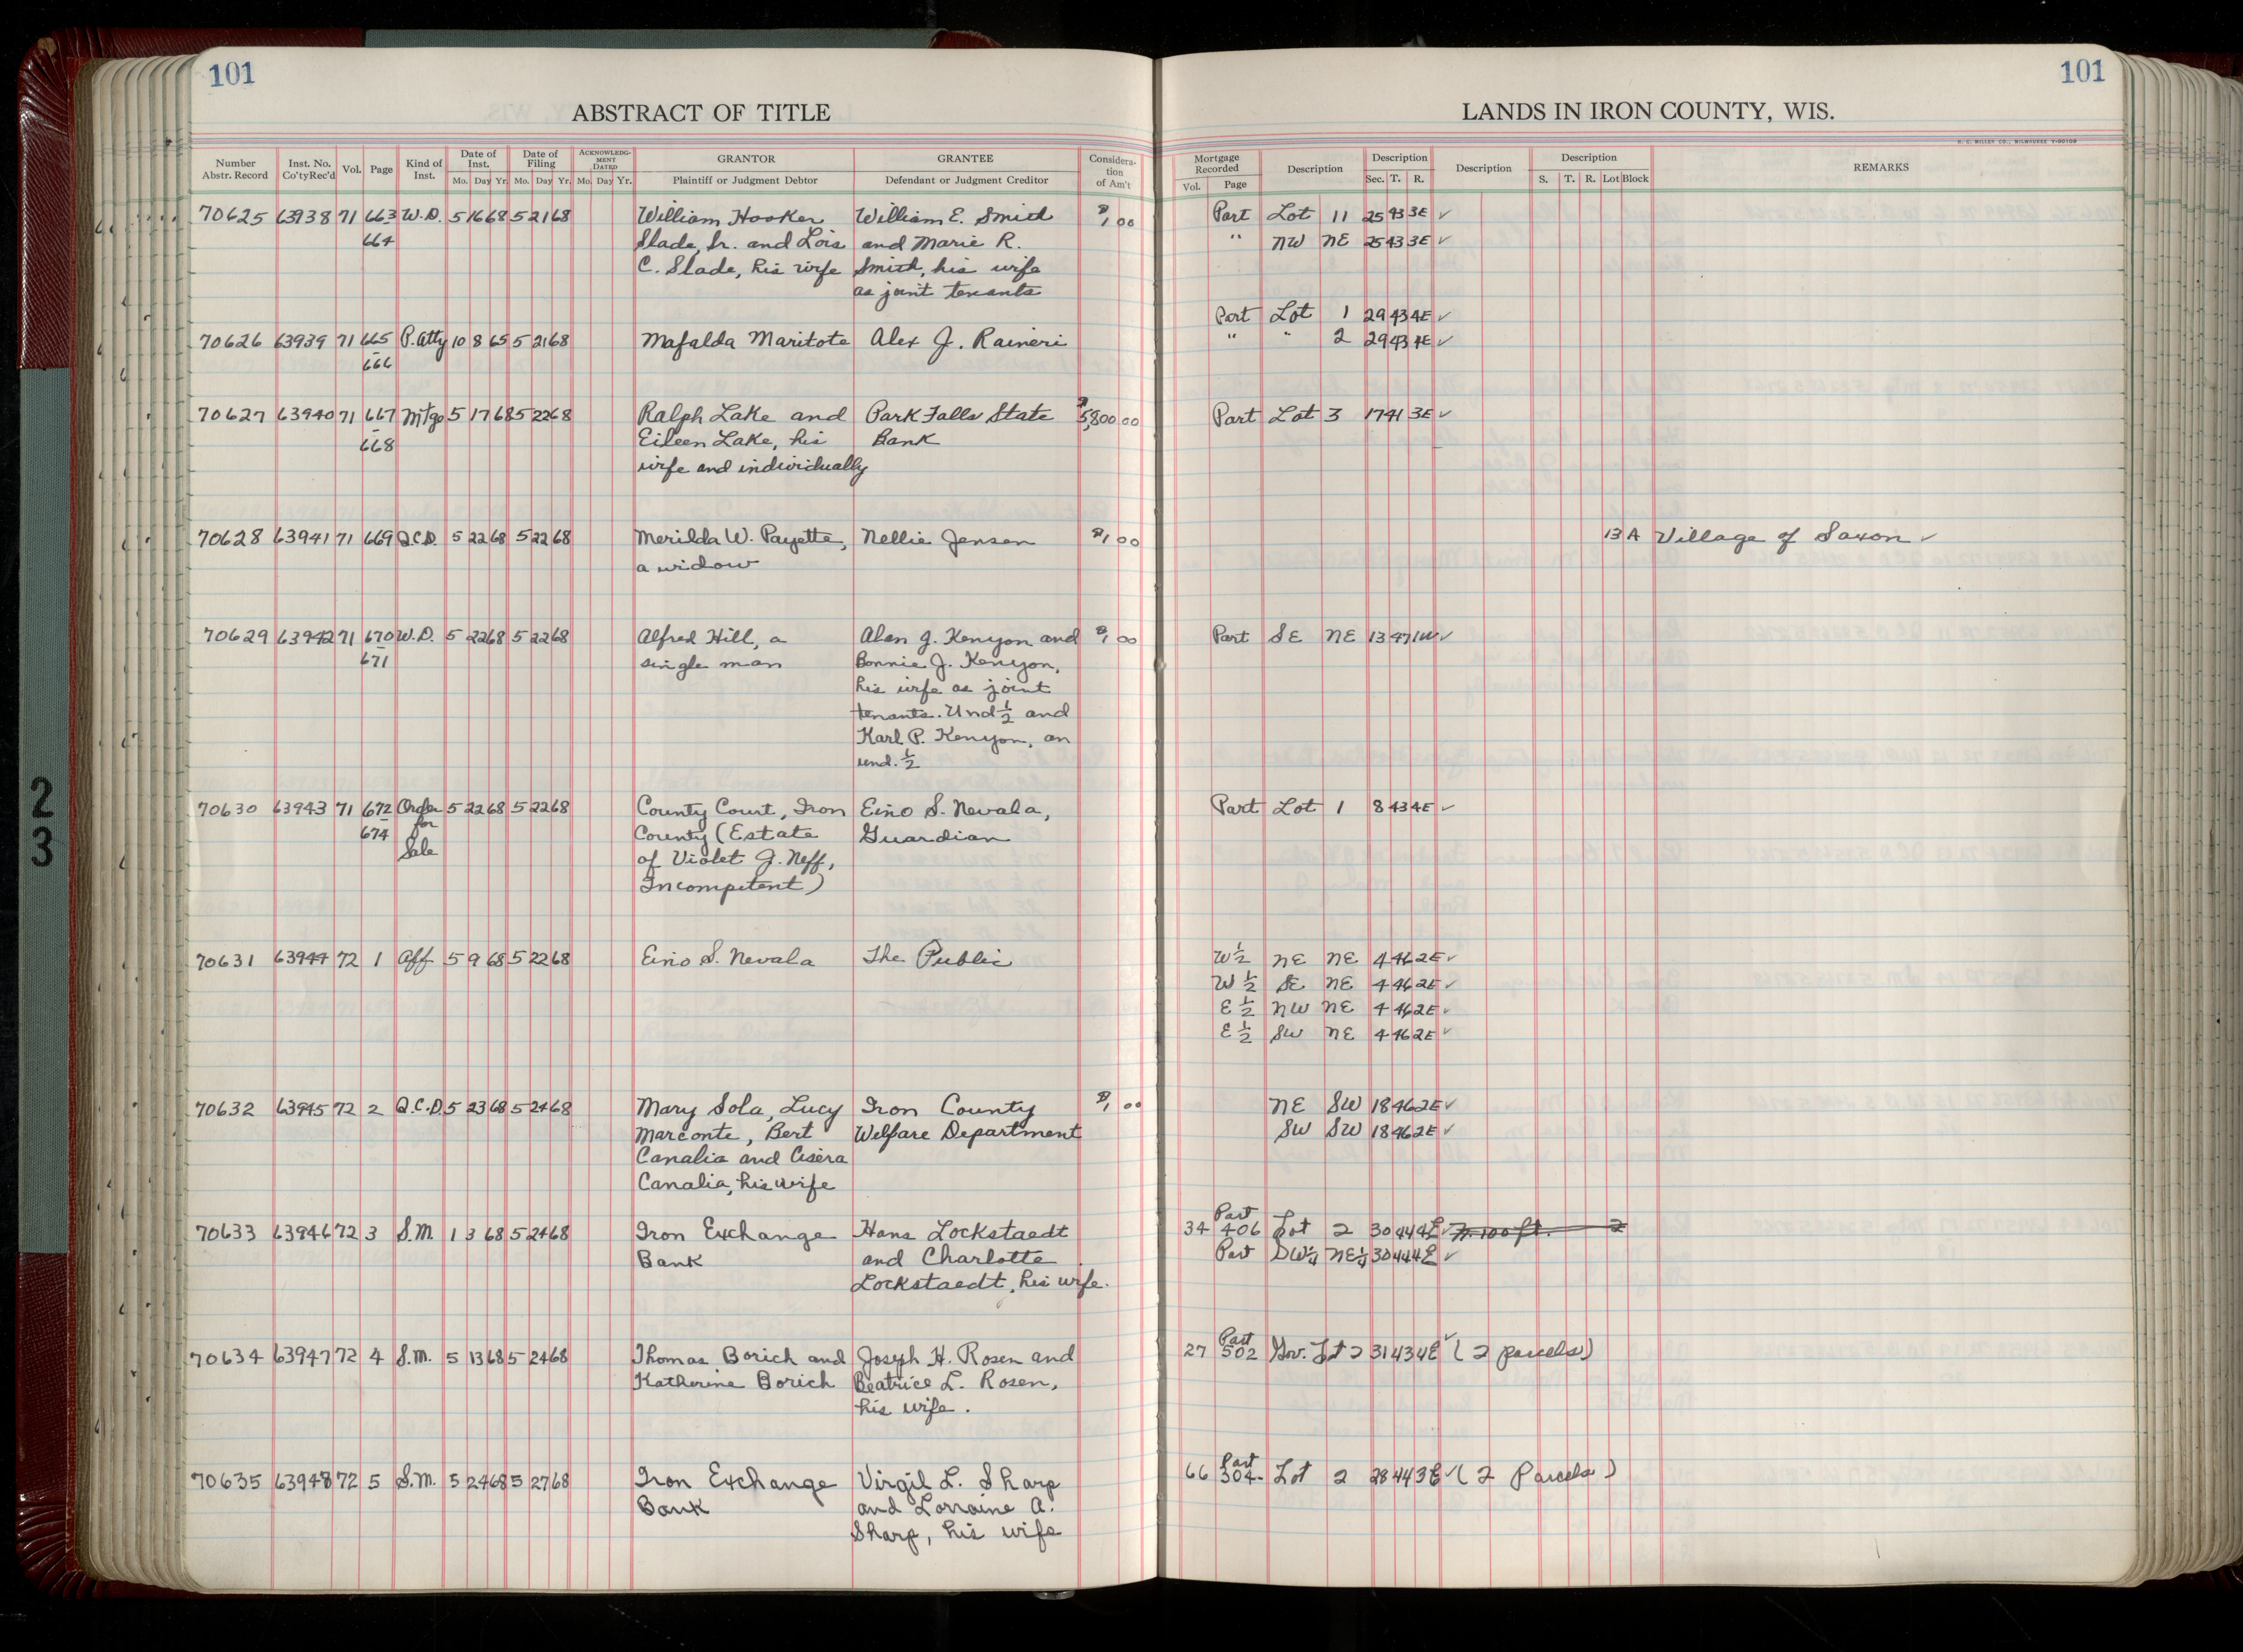 101
101
ABSTRACT OF TITLE
LANDS IN IRON COUNTY, WIS.
H. C. MILLER CO., MILWAUKEE
Number Abstr. Record Inst. No. Co'ty Rec'd Vol. Page Kind of Inst. Date of Inst. Mo. Day Yr. Date of Filing Mo. Day Yr. ACKNOWLEDGMENT DATED Mo. Day Yr. GRANTOR Plaintiff or Judgment Debtor GRANTEE Defendant or Judgment Creditor Consideration of Am't Mortgage Recorded Vol. Page Description Description Sec. T. R. Description Description S. T. R. Lot Block REMARKS
70625 63938 71 663 W.D. 5 16 68 5 21 68 William Hooker William E. Smith $1 00 Part Lot 11 25 43 3E ✓
664 Slade, Sr. and Lois and Marie R. " NW NE 25 43 3E ✓
C. Slade, his wife Smith, his wife
as joint tenants
Part Lot 1 29 43 4E ✓
70626 63939 71 665 P. Atty 10 8 65 5 21 68 Mafalda Maritote Alex J. Raineri " " 2 29 43 4E ✓
666
70627 63940 71 667 Mtge 5 17 68 5 22 68 Ralph Lake and Park Falls State $5,800 00 Part Lot 3 17 41 3E ✓
668 Eileen Lake, his Bank
wife and individually
70628 63941 71 669 Q.C.D. 5 22 68 5 22 68 Merilda W. Payette, Nellie Jensen $1 00 13 A Village of Saxon ✓
a widow
70629 63942 71 670 W.D. 5 22 68 5 22 68 Alfred Hill, a Alan J. Kenyon and $1 00 Part SE NE 13 47 1W ✓
671 single man Bonnie J. Kenyon,
his wife as joint
tenants. Und 1/2 and
Karl P. Kenyon, an
und. 1/2
70630 63943 71 672 Order 5 22 68 5 22 68 County Court, Iron Eino S. Nevala, Part Lot 1 8 43 4E ✓
674 for County (Estate Guardian
Sale of Violet J. Neff,
Incompetent)
70631 63944 72 1 Aff 5 9 68 5 22 68 Eino S. Nevala The Public W 1/2 NE NE 4 46 2E ✓
W 1/2 SE NE 4 46 2E ✓
E 1/2 NW NE 4 46 2E ✓
E 1/2 SW NE 4 46 2E ✓
70632 63945 72 2 Q.C.D. 5 23 68 5 24 68 Mary Sola, Lucy Iron County $1 00 NE SW 18 46 2E ✓
Marconte, Bert Welfare Department SW SW 18 46 2E ✓
Canalia and
Canalia, his wife
Part
70633 63946 72 3 S.M. 1 3 68 5 24 68 Iron Exchange Hans Lockstaedt 34 406 Lot 2 30 44 4E ✓ N. 100 ft. 2
Bank and Charlotte Part SW 1/4 NE 1/4 30 44 4E ✓
Lockstaedt, his wife.
Part
70634 63947 72 4 S.M. 5 13 68 5 24 68 Thomas Borich and Joseph H. Rosen and 27 502 Gov. Lt 2 31 43 4E ✓ (2 parcels)
Katherine Borich Beatrice L. Rosen,
his wife.
Part
70635 63948 72 5 S.M. 5 24 68 5 27 68 Iron Exchange Virgil L. Sharp 66 304 Lot 2 28 44 3E ✓ (2 Parcels)
Bank and Lorraine A.
Sharp, his wife
2
3